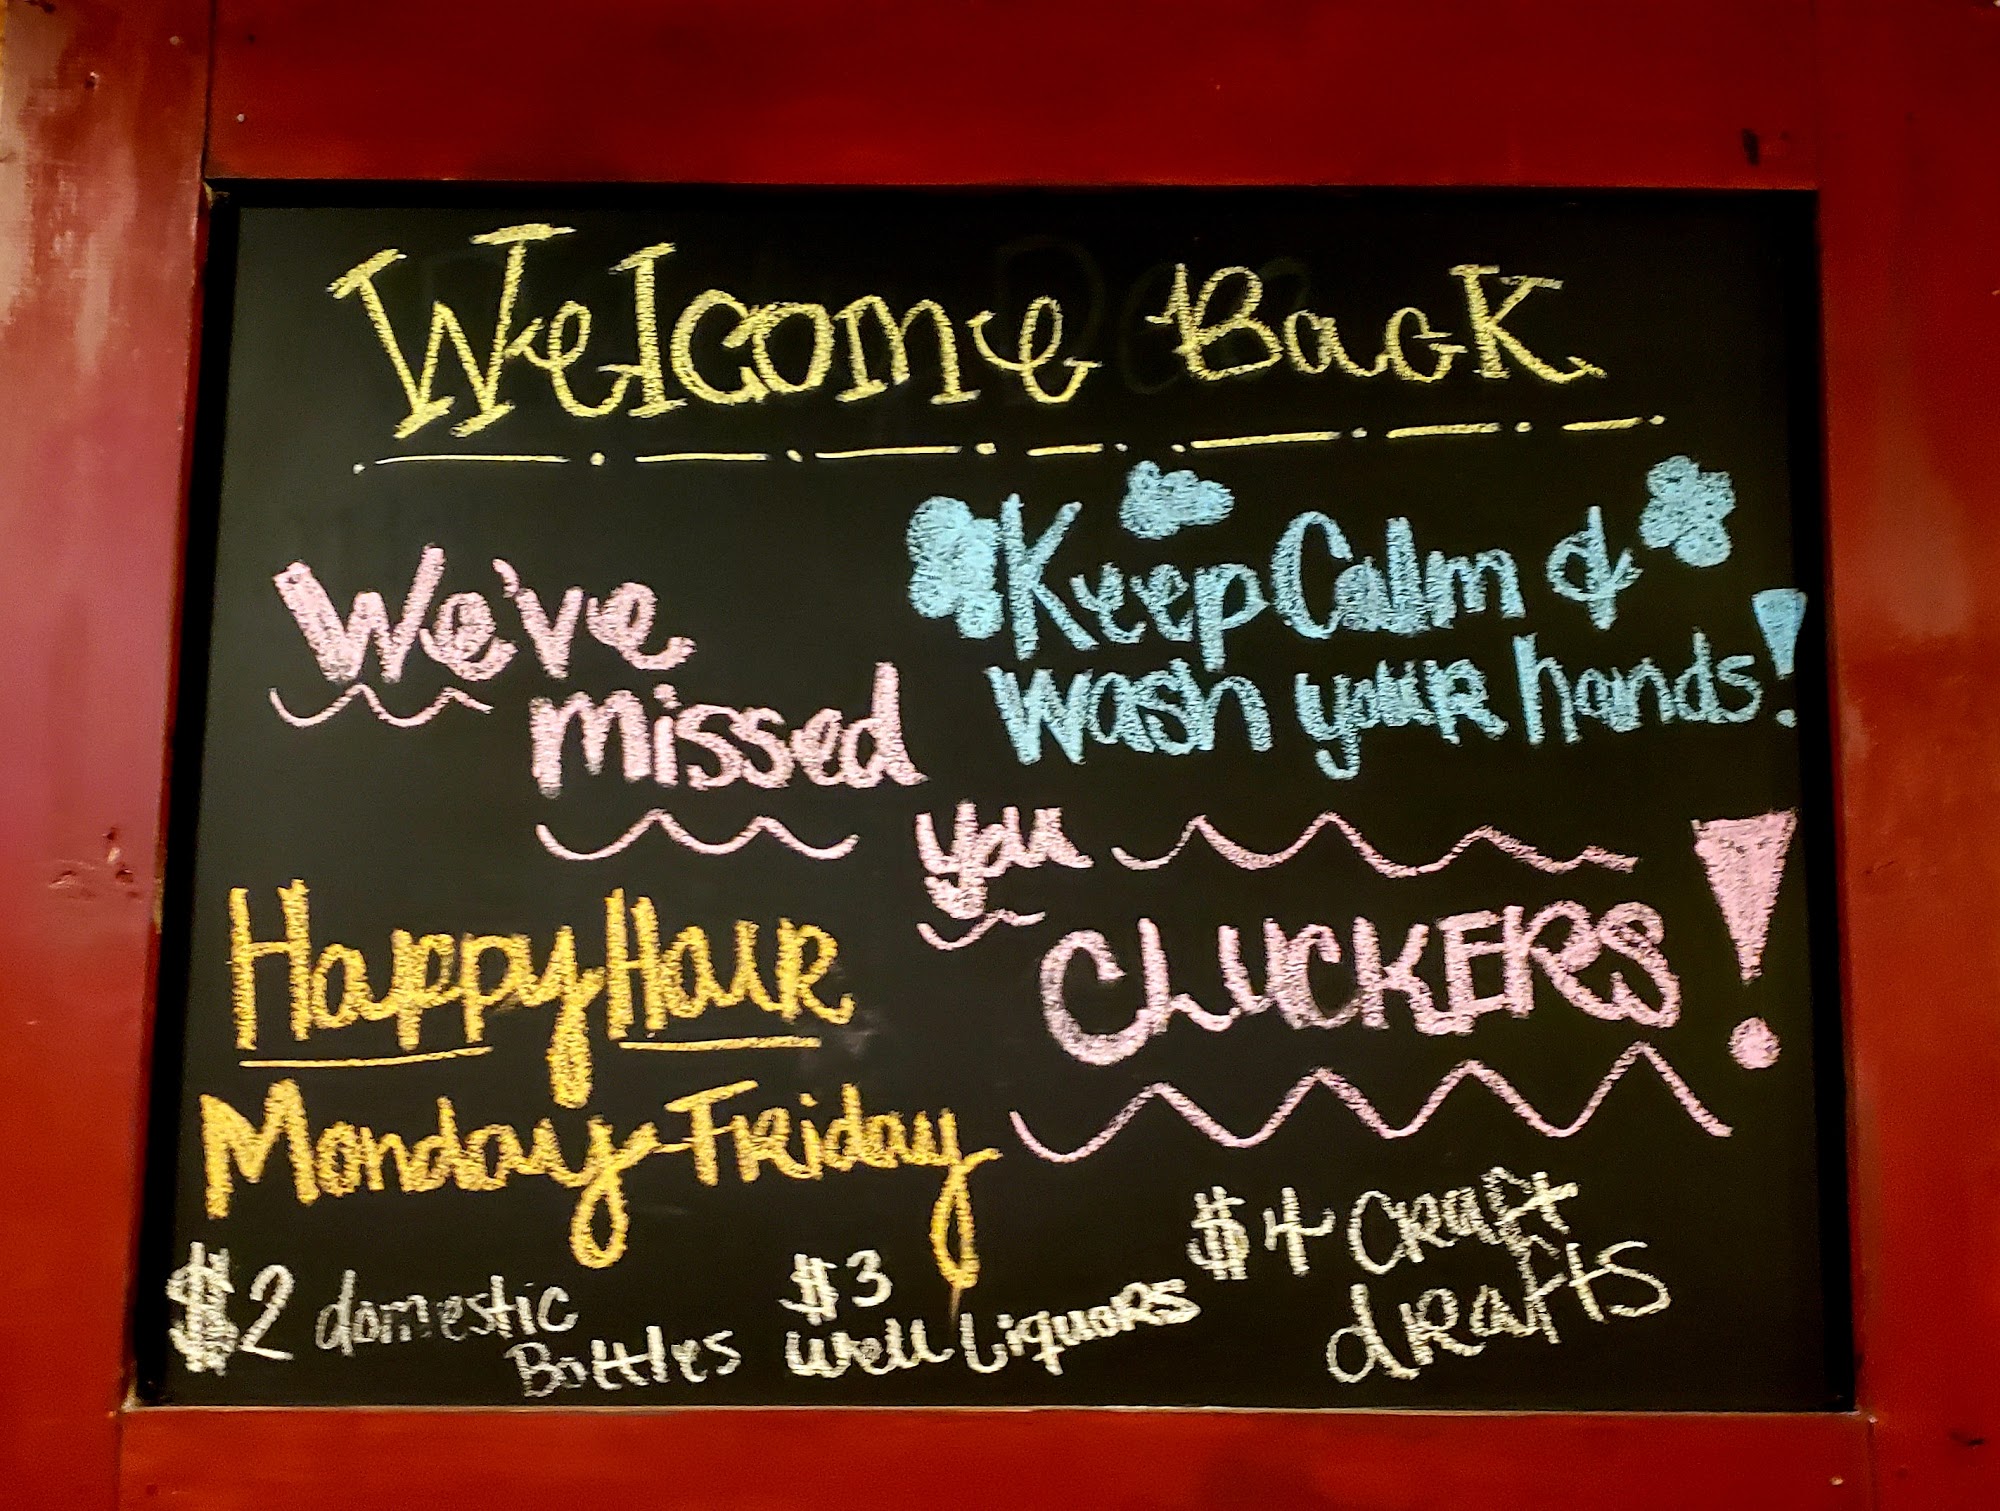 Welcome Back
Keep Calm &
wash your hands!
We've
missed
you
CLUCKERS!
Happy Hour
Monday-Friday
$2 domestic
Bottles
$3
well Liquors
$4 Craft
drafts